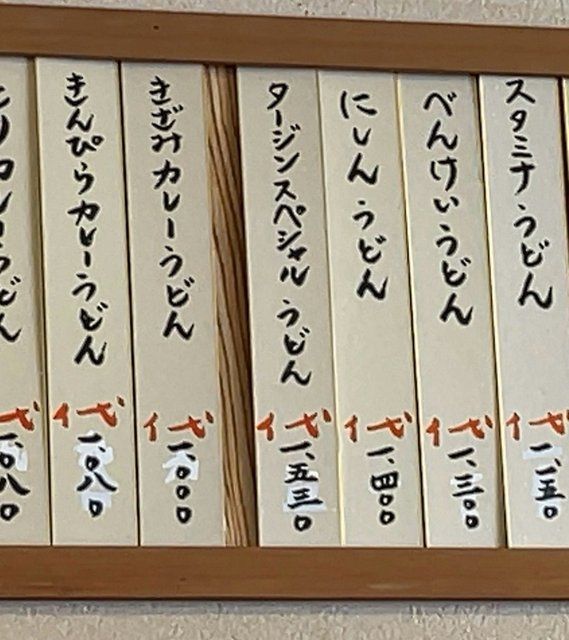 スタミナうどん
代一、一五〇
べんけいうどん
代一、三〇〇
にしんうどん
代一、四〇〇
タージンスペシャルうどん
代一、五三〇
きざみカレーうどん
代一、〇〇〇
きんぴらカレーうどん
代一、〇八〇
とりカレーうどん
代一、〇八〇